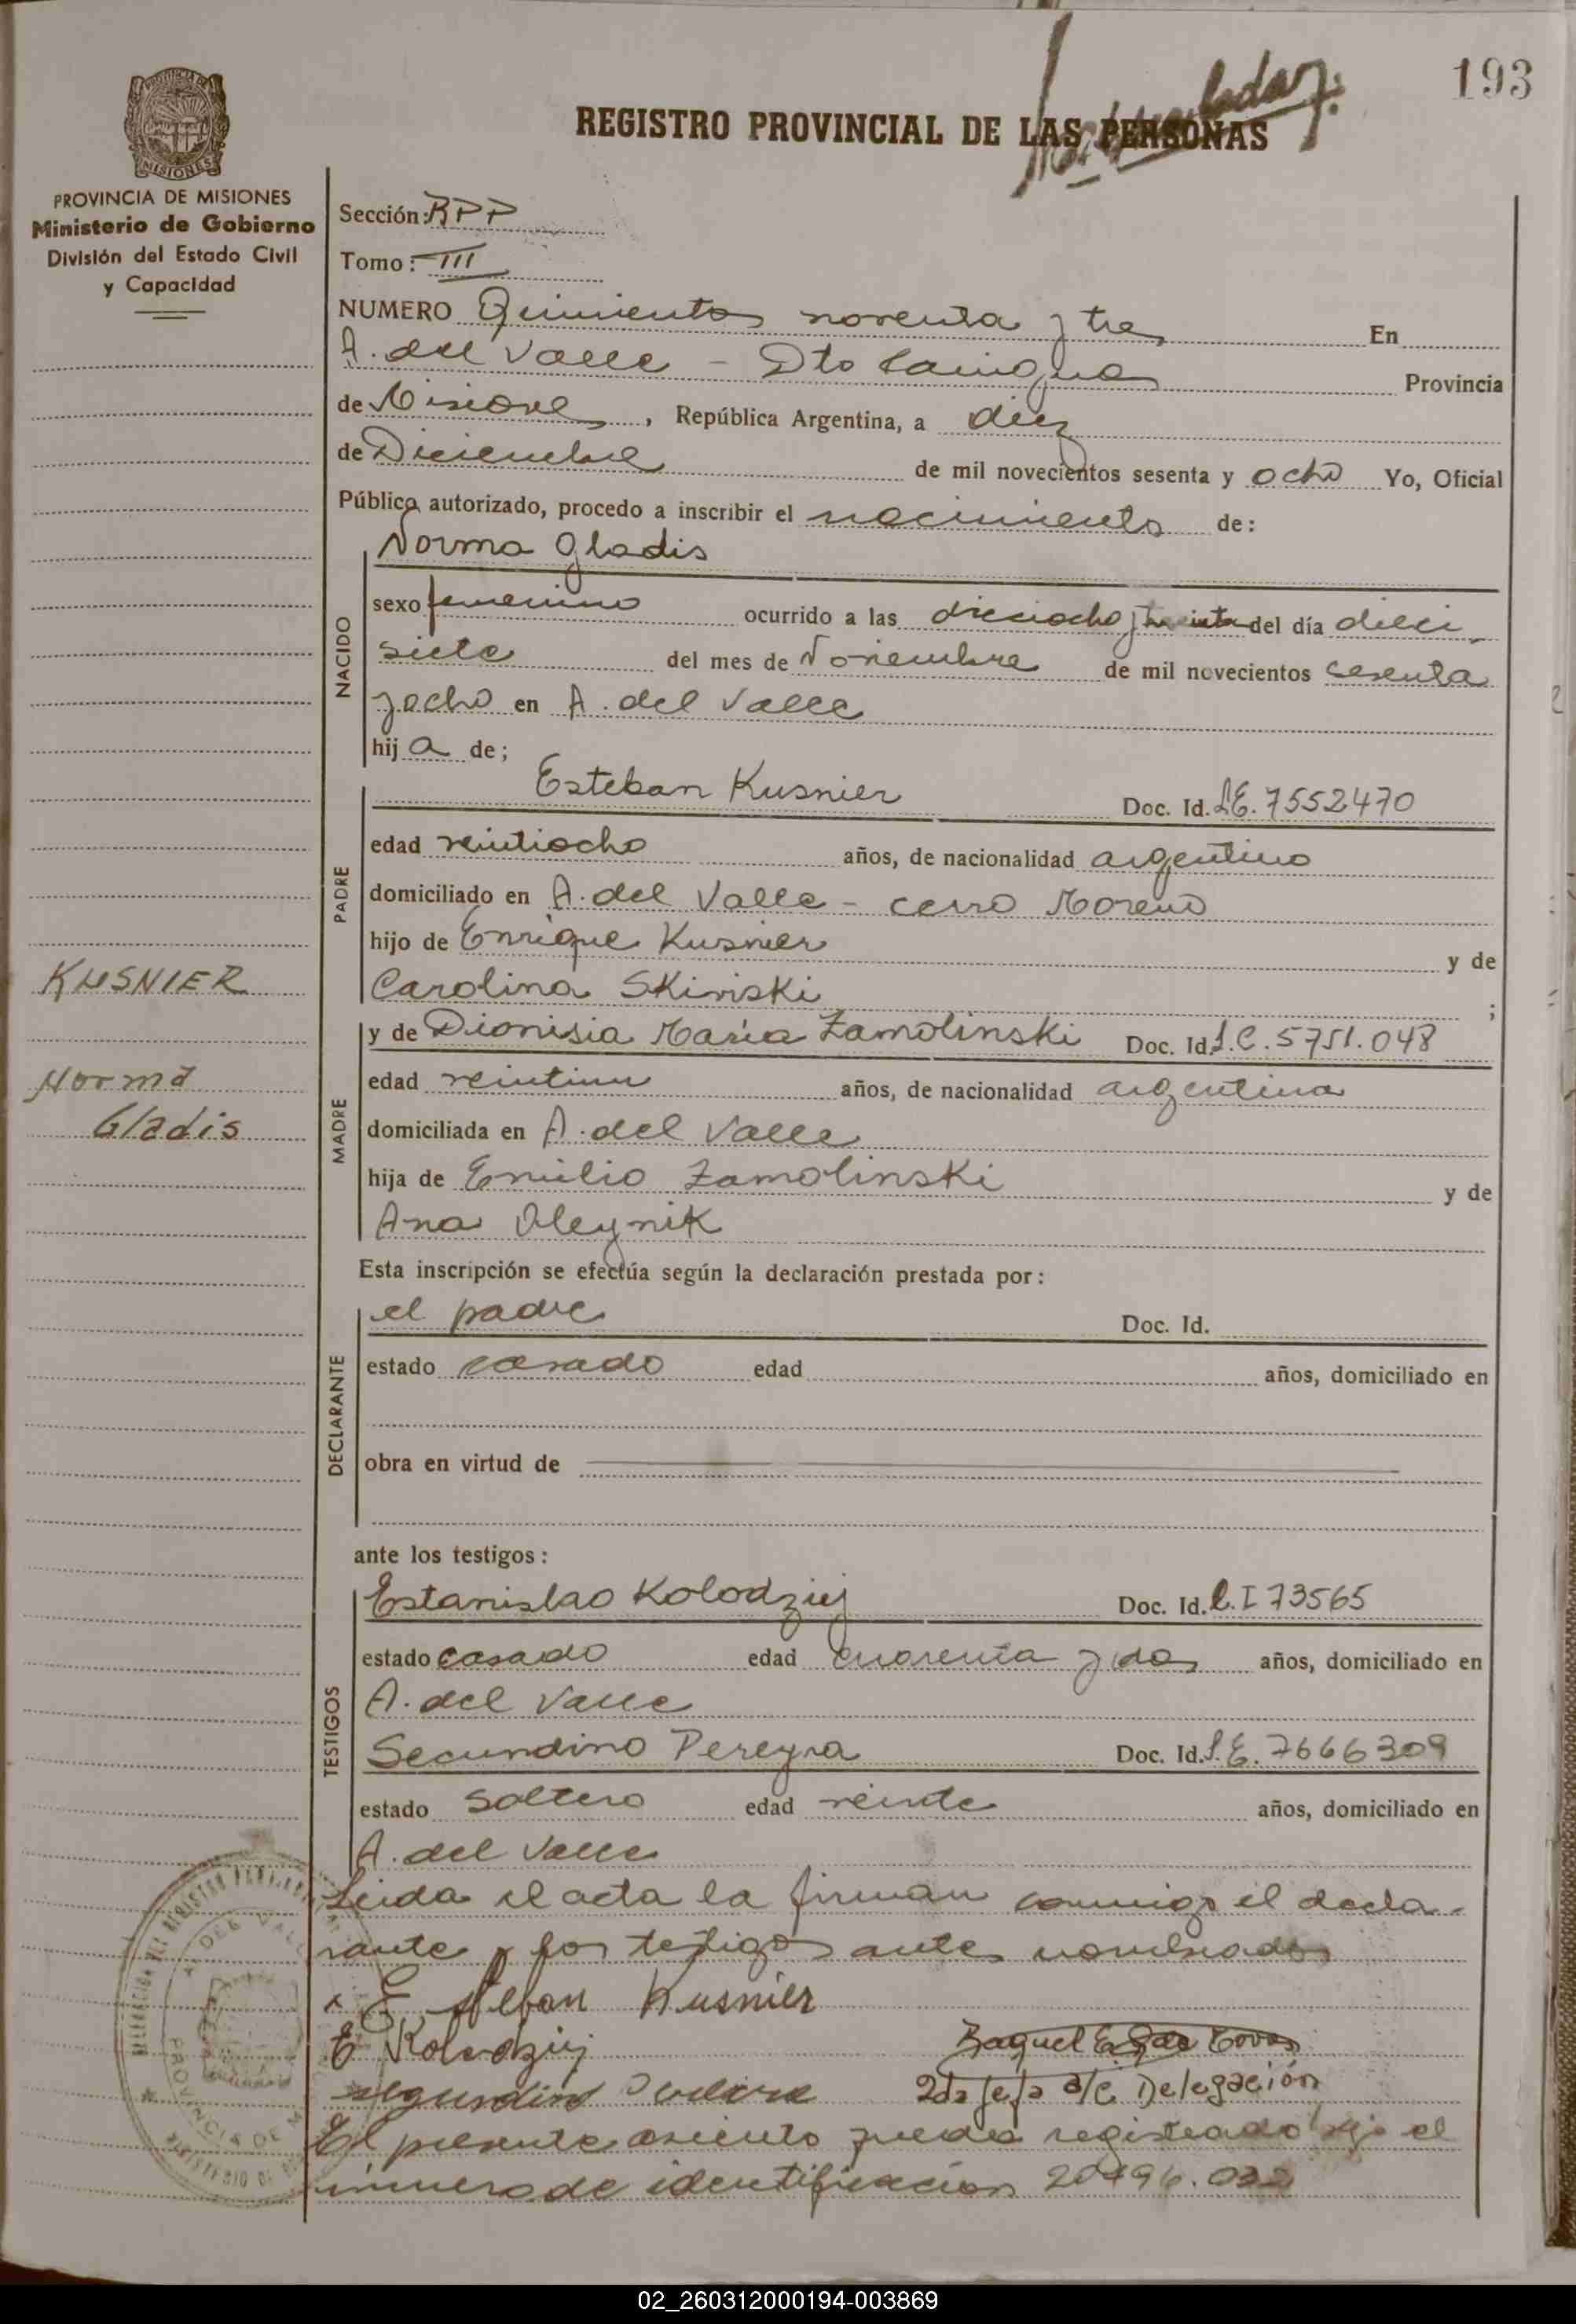 193
REGISTRO PROVINCIAL DE LAS PERSONAS
PROVINCIA DE MISIONES
Ministerio de Gobierno
División del Estado Civil
y Capacidad
Sección: RPP
Tomo: III
NUMERO Quinientos noventa y tres En
A. del Valle - Dto Cainguas Provincia
de Misiones, República Argentina, a diez
de Diciembre de mil novecientos sesenta y ocho Yo, Oficial
Público autorizado, procedo a inscribir el nacimiento de:
Norma Gladis
NACIDO
sexo femenino ocurrido a las dieciocho y treinta del día dieci
siete del mes de Noviembre de mil novecientos sesenta
y ocho en A. del Valle
hija de;
Esteban Kusnier Doc. Id. L.E. 7552470
PADRE
edad veintiocho años, de nacionalidad argentino
domiciliado en A. del Valle - cerro Moreno
hijo de Enrique Kusnier y de
Carolina Skiviski ;
KUSNIER
Norma
Gladis
y de Dionisia Maria Zamolinski Doc. Id. L.C. 5751.048
MADRE
edad veintiun años, de nacionalidad argentina
domiciliada en A. del Valle
hija de Emilio Zamolinski y de
Ana Oleynik
Esta inscripción se efectúa según la declaración prestada por:
el padre Doc. Id.
DECLARANTE
estado casado edad años, domiciliado en
obra en virtud de
ante los testigos:
Estanislao Kolodziej Doc. Id. C.I 73565
TESTIGOS
estado casado edad cuarenta y dos años, domiciliado en
A. del Valle
Secundino Pereyra Doc. Id. L.E. 7666309
estado soltero edad veinte años, domiciliado en
A. del Valle
Leida el acta la firman conmigo el decla-
rante y los testigos antes nombrados
x Esteban Kusnier
E Kolodziej
2da Jefa a/c Delegación
El presente asiento queda registrado bajo el
numero de identificación
02_260312000194-003869